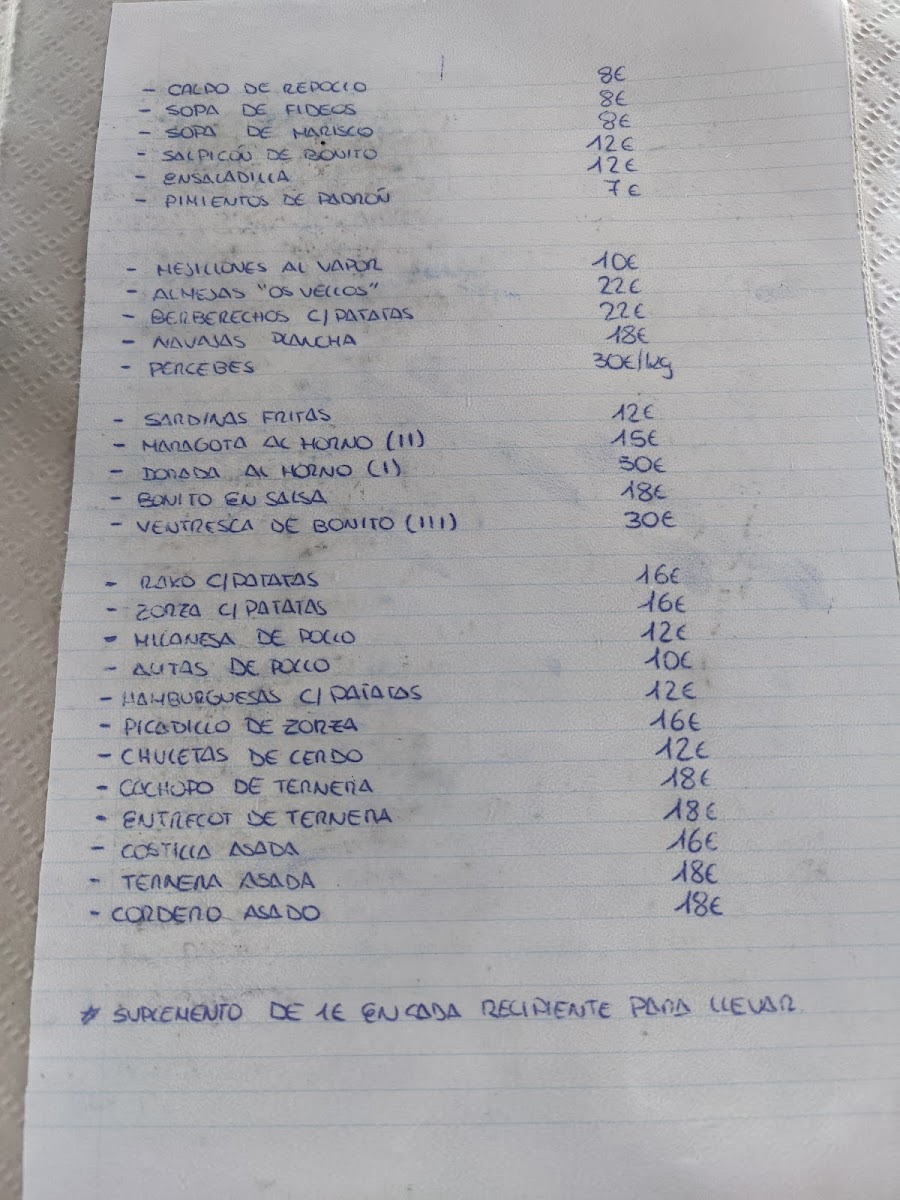 - CALDO DE REPOLLO 8€
- SOPA DE FIDEOS 8€
- SOPA DE MARISCO 8€
- SALPICÓN DE BONITO 12€
- ENSALADILLA 12€
- PIMIENTOS DE PADRÓN 7€
- MEJILLONES AL VAPOR 10€
- ALMEJAS "OS VELLOS" 22€
- BERBERECHOS C/PATATAS 22€
- NAVAJAS PLANCHA 18€
- PERCEBES 30€/kg
- SARDINAS FRITAS 12€
- MARAGOTA AL HORNO (II) 15€
- DORADA AL HORNO (I) 30€
- BONITO EN SALSA 18€
- VENTRESCA DE BONITO (III) 30€
- RAXO C/PATATAS 16€
- ZORZA C/PATATAS 16€
- MILANESA DE POLLO 12€
- ALITAS DE POLLO 10€
- HAMBURGUESAS C/PATATAS 12€
- PICADILLO DE ZORZA 16€
- CHULETAS DE CERDO 12€
- CACHOPO DE TERNERA 18€
- ENTRECOT DE TERNERA 18€
- COSTILLA ASADA 16€
- TERNERA ASADA 18€
- CORDERO ASADO 18€
* SUPLEMENTO DE 1€ EN CADA RECIPIENTE PARA LLEVAR.